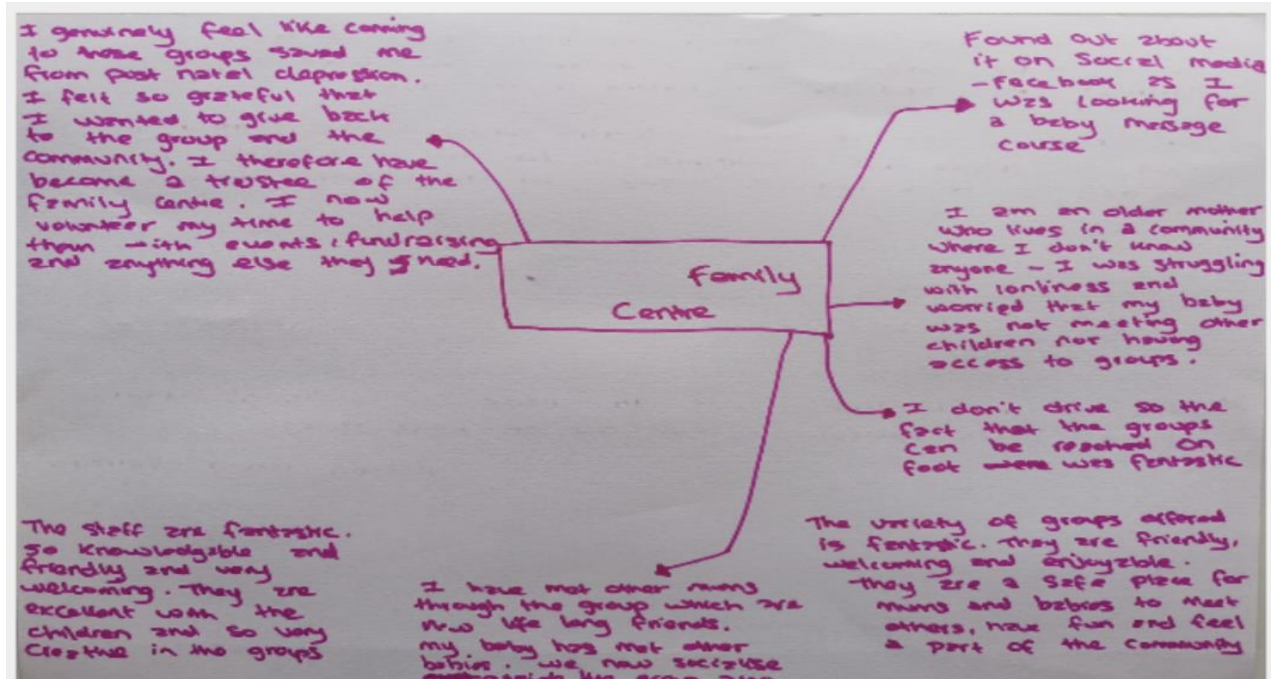 I genuinely feel like coming
to these groups saved me
from post natel depression.
I felt so grateful that
I wanted to give back
to the group and the
community. I therefore have
become a trustee of the
family centre. I now
volunteer my time to help
them with events, fundraising
and anything else they need.
Found out about
it on Social media
- facebook as I
was looking for
a baby massage
course
Family
Centre
I am an older mother
who lives in a community
where I don't know
anyone - I was struggling
with lonliness and
worried that my baby
was not meeting other
children nor having
access to groups.
I don't drive so the
fact that the groups
can be reached on
foot was fantastic
The staff are fantastic.
So knowledgable and
friendly and very
welcoming. They are
excellent with the
children and so very
creative in the groups
I have met other mums
through the group which are
now life long friends.
my baby has met other
babies. we now socialise
The variety of groups offered
is fantastic. They are friendly,
welcoming and enjoyable.
They are a safe place for
mums and babies to meet
others, have fun and feel
a part of the community